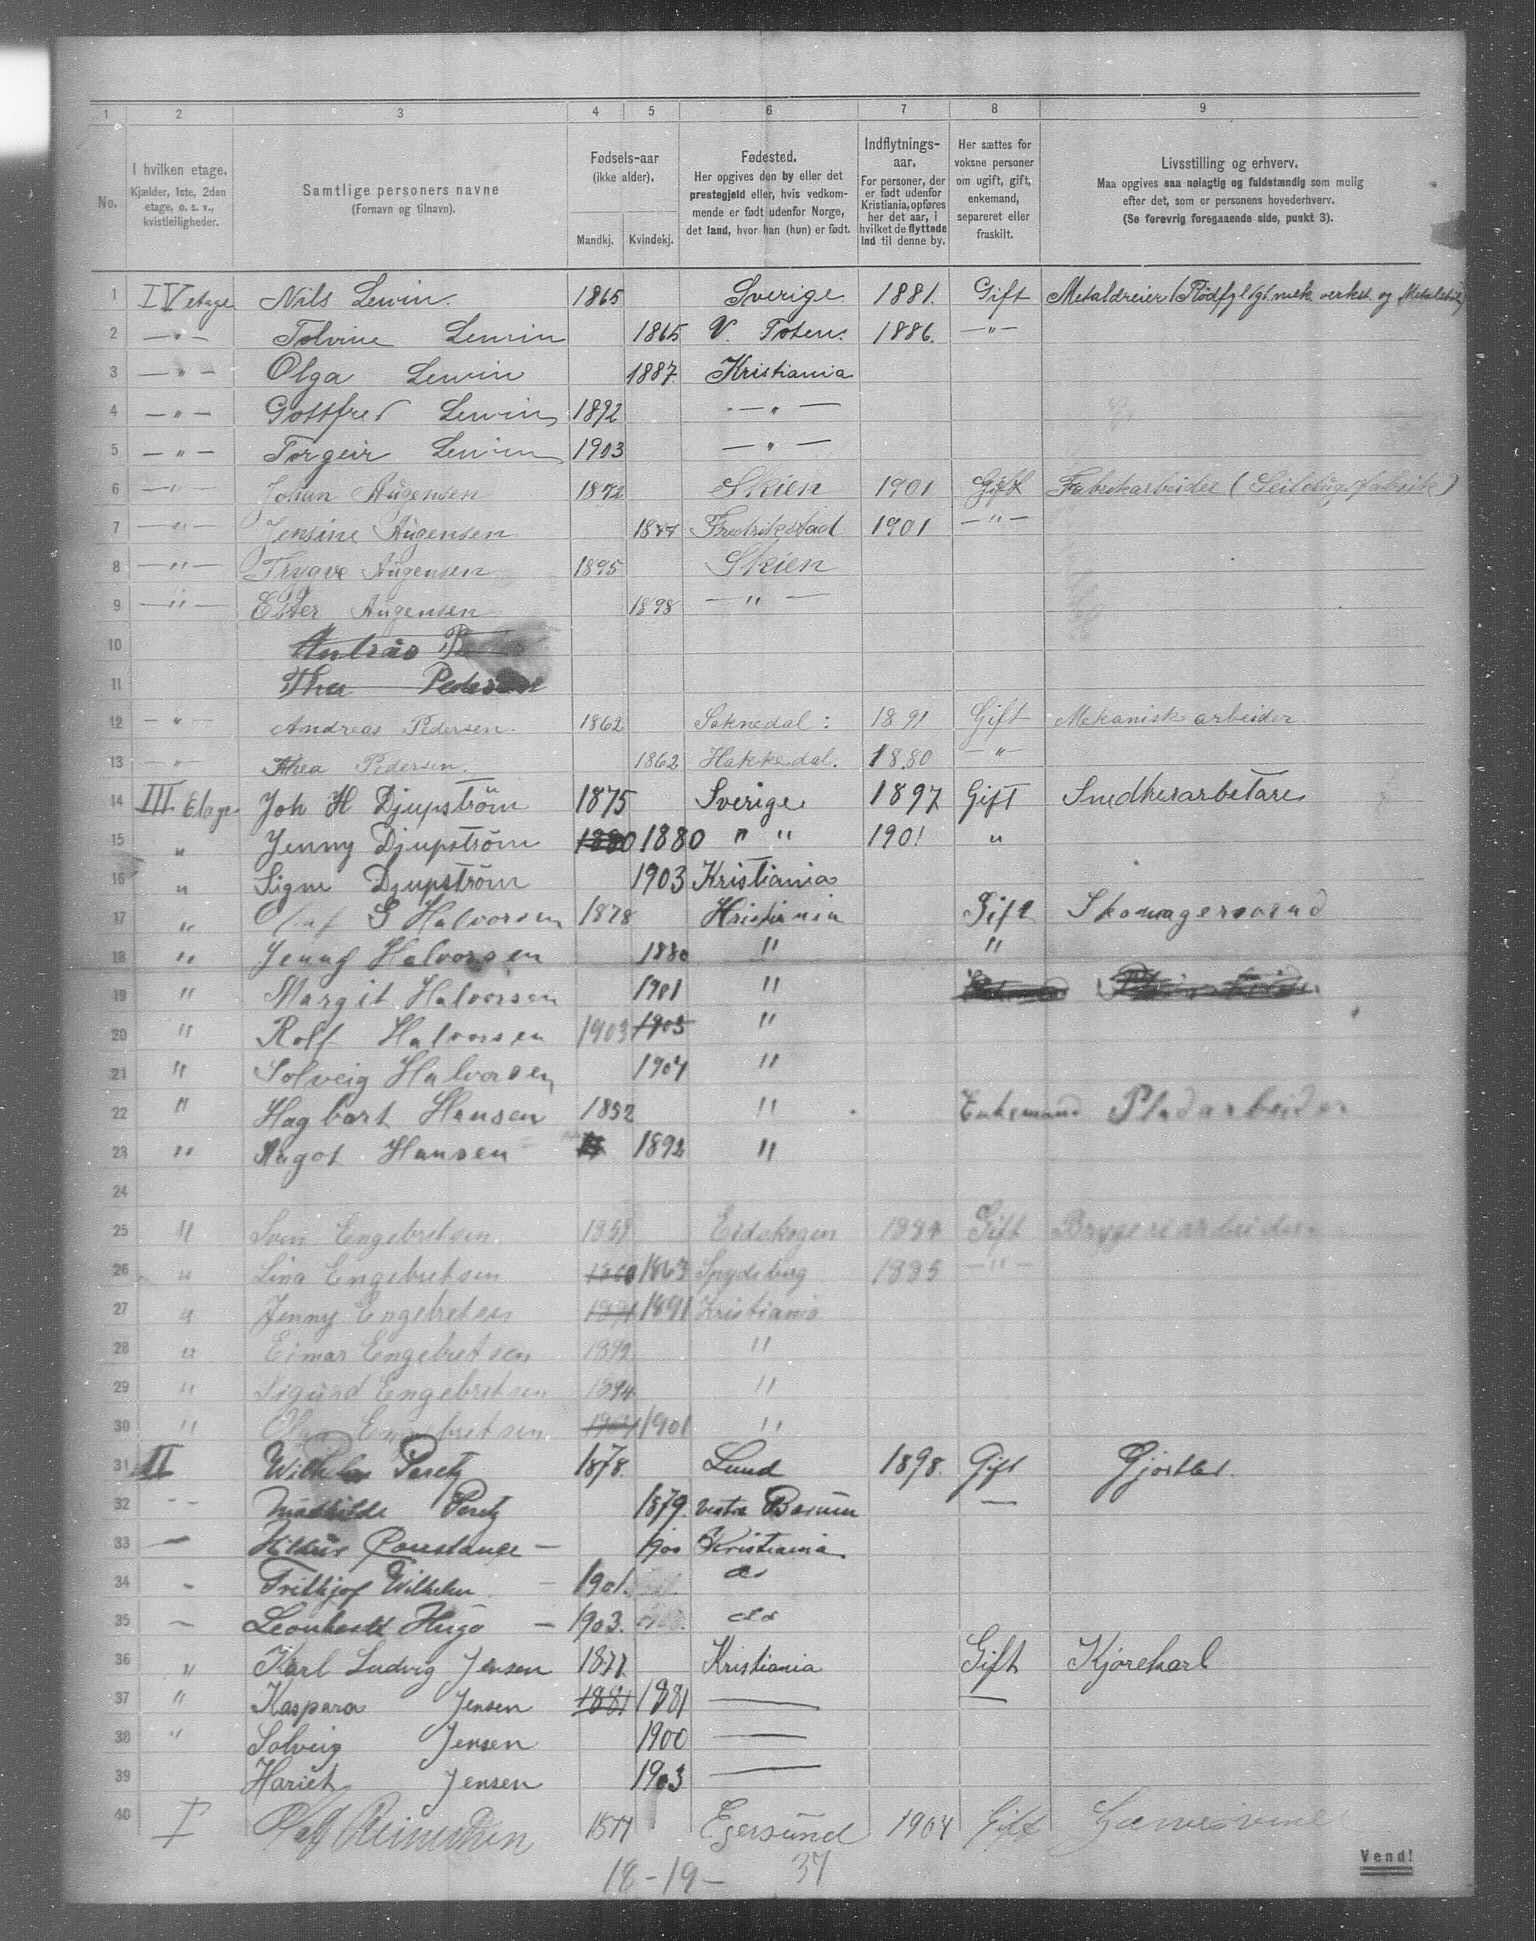 1 2 3 4 5 6 7 8 9
No.
I hvilken etage.
Kjælder, 1ste, 2den
etage, o. s. v.,
kvistleiligheder.
Samtlige personers navne
(Fornavn og tilnavn).
Fødsels-aar
(ikke alder).
Mandkj. Kvindekj.
Fødested.
Her opgives den by eller det
prestegjeld eller, hvis vedkom-
mende er født udenfor Norge,
det land, hvor han (hun) er født.
Indflytnings-
aar.
For personer, der
er født udenfor
Kristiania, opføres
her det aar, i
hvilket de flyttede
ind til denne by.
Her sættes for
voksne personer
om ugift, gift,
enkemand,
separeret eller
fraskilt.
Livsstilling og erhverv.
Maa opgives saa nøiagtig og fuldstændig som mulig
efter det, som er personens hovederhverv.
(Se forøvrig foregaaende side, punkt 3).
1 IV etage Nils Lewin. 1865 Sverige 1881. Gift Metaldreier mek. verkst. og
2 —"— Tolvine Lewin 1865 V. Toten. 1886. —"—
3 —"— Olga Lewin 1887 Kristiania
4 —"— Gottfred Lewin 1892 —"—
5 —"— Torgeir Lewin 1903 —"—
6 —"— Johan Augensen 1872 Skien 1901 Gift Fabrikarbeider (Seildugsfabrik)
7 —"— Jensine Augensen 1877 Fredrikstad 1901 —"—
8 —"— Trygve Augensen 1895 Skien
9 —"— Ester Augensen 1898 —"—
10
11 Thea Pedersen
12 —"— Andreas Pedersen. 1862 Soknedal: 1891 Gift Mekanisk arbeider
13 —"— Thea Pedersen. 1862 Hakkedal. 1880 —"—
14 III Etage Joh H Djupström 1875 Sverige 1897 Gift Snedkerarbetare
15 " Jenny Djupström 1880 1880 " " 1901 "
16 " Signe Djupström 1903 Kristiania
17 " Olaf S Halvorsen 1878 Kristiania Gift Skomagersvend
18 " Jenny Halvorsen 1880 " "
19 " Margit Halvorsen 1901 "
20 " Rolf Halvorsen 1903 1903 "
21 " Solveig Halvorsen 1904 "
22 " Hagbart Hansen 1852 " Enkemand Pladarbeider
23 " Aagot Hansen 1892 "
24
25 " Sven Engebretsen 1859 Eidskogen 1884 Gift Bryggeriarbeider
26 " Lina Engebretsen 1863 Spydeberg 1885 —"—
27 " Jenny Engebretsen 1891 1891 Kristiania
28 " Einar Engebretsen 1892 "
29 " Sigurd Engebretsen 1894 "
30 " Olga Engebretsen 1901 1901 "
31 II Wilhelm Peretz 1878. Lund 1898. Gift Gjørtler.
32 - - Mathilde Peretz 1879. vestre Bærum —
33 — Constance — 1900 Kristiania
34 - Fritjof Wilhelm — 1901. do
35 — Leonhardt Hugo — 1903. do
36 " Karl Ludvig Jensen 1877 Kristiania Gift Kjørekarl
37 " Kaspara Jensen 1881 1881 — —
38 " Solveig Jensen 1900 —
39 Hariet Jensen 1903 —
40 I 1877 Egersund 1904 Gift
18-19- 37
Vend!